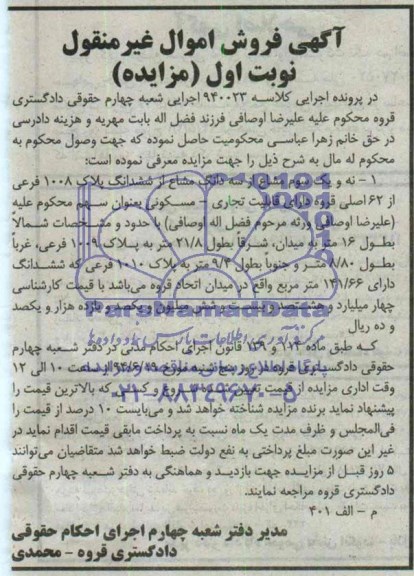 آگهی فروش اموال غیرمنقول
نوبت اول (مزایده)
در پرونده اجرایی کلاسه ۹۴۰۰۲۳ اجرایی شعبه چهارم حقوقی دادگستری
قروه محکوم علیه علیرضا اوصافی فرزند فضل اله بابت مهریه و هزینه دادرسی
در حق خانم زهرا عباسی محکومیت حاصل نموده که جهت وصول محکوم به
محکوم له مال به شرح ذیل را جهت مزایده معرفی نموده است:
۱ – نه و یک سوم مشاع از سه دانگ مشاع از ششدانگ پلاک ۱۰۰۸ فرعی
از ۶۲ اصلی قروه دارای قابلیت تجاری – مسکونی بعنوان سهم محکوم علیه
(علیرضا اوصافی ورثه مرحوم فضل اله اوصافی) با حدود و مشخصات شمالاً
بطول ۱۶ متر به میدان، شرقاً بطول ۲۱/۸ متر به پلاک ۱۰۰۹ فرعی، غرباً
بطول ۹/۸۰ متر و جنوباً بطول ۹/۴ متر به پلاک ۱۰۱۰ فرعی که ششدانگ
دارای ۱۴۱/۶۶ متر مربع واقع در میدان اتحاد قروه می‌باشد با قیمت کارشناسی
چهار میلیارد و هشتصد و بیست و شش میلیون و یکصد و یازده هزار و یکصد
و ده ریال
که طبق ماده ۱۱۳ و قانون اجرای احکام مدنی در دفتر شعبه چهارم
حقوقی دادگستری قروه در روز پنج شنبه مورخ از ساعت ۱۰ الی ۱۲
وقت اداری مزایده از قیمت که بالاترین قیمت را
پیشنهاد نماید برنده مزایده شناخته خواهد شد و می‌بایست ۱۰ درصد از قیمت را
فی‌المجلس و ظرف مدت یک ماه نسبت به پرداخت مابقی قیمت اقدام نماید در
غیر این صورت مبلغ پرداختی به نفع دولت ضبط خواهد شد متقاضیان می‌توانند
۵ روز قبل از مزایده جهت بازدید و هماهنگی به دفتر شعبه چهارم حقوقی
دادگستری قروه مراجعه نمایند.
م – الف ۴۰۱
مدیر دفتر شعبه چهارم اجرای احکام حقوقی
دادگستری قروه – محمدی
ParsNamadData
۰۲۱-۸۸۳۴۹۶۷۰-۵